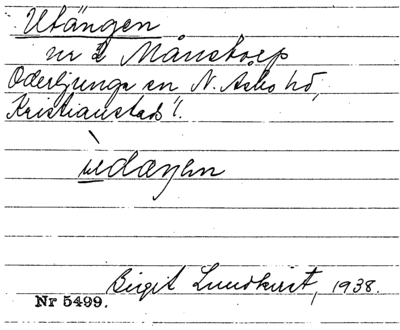 Utängen
nr 2 Månstorp
Oderljunga sn N. Asbo hd,
Kristianstads l.
ùdæŋen
Birgit Lundkvist, 1938.
Nr 5499.